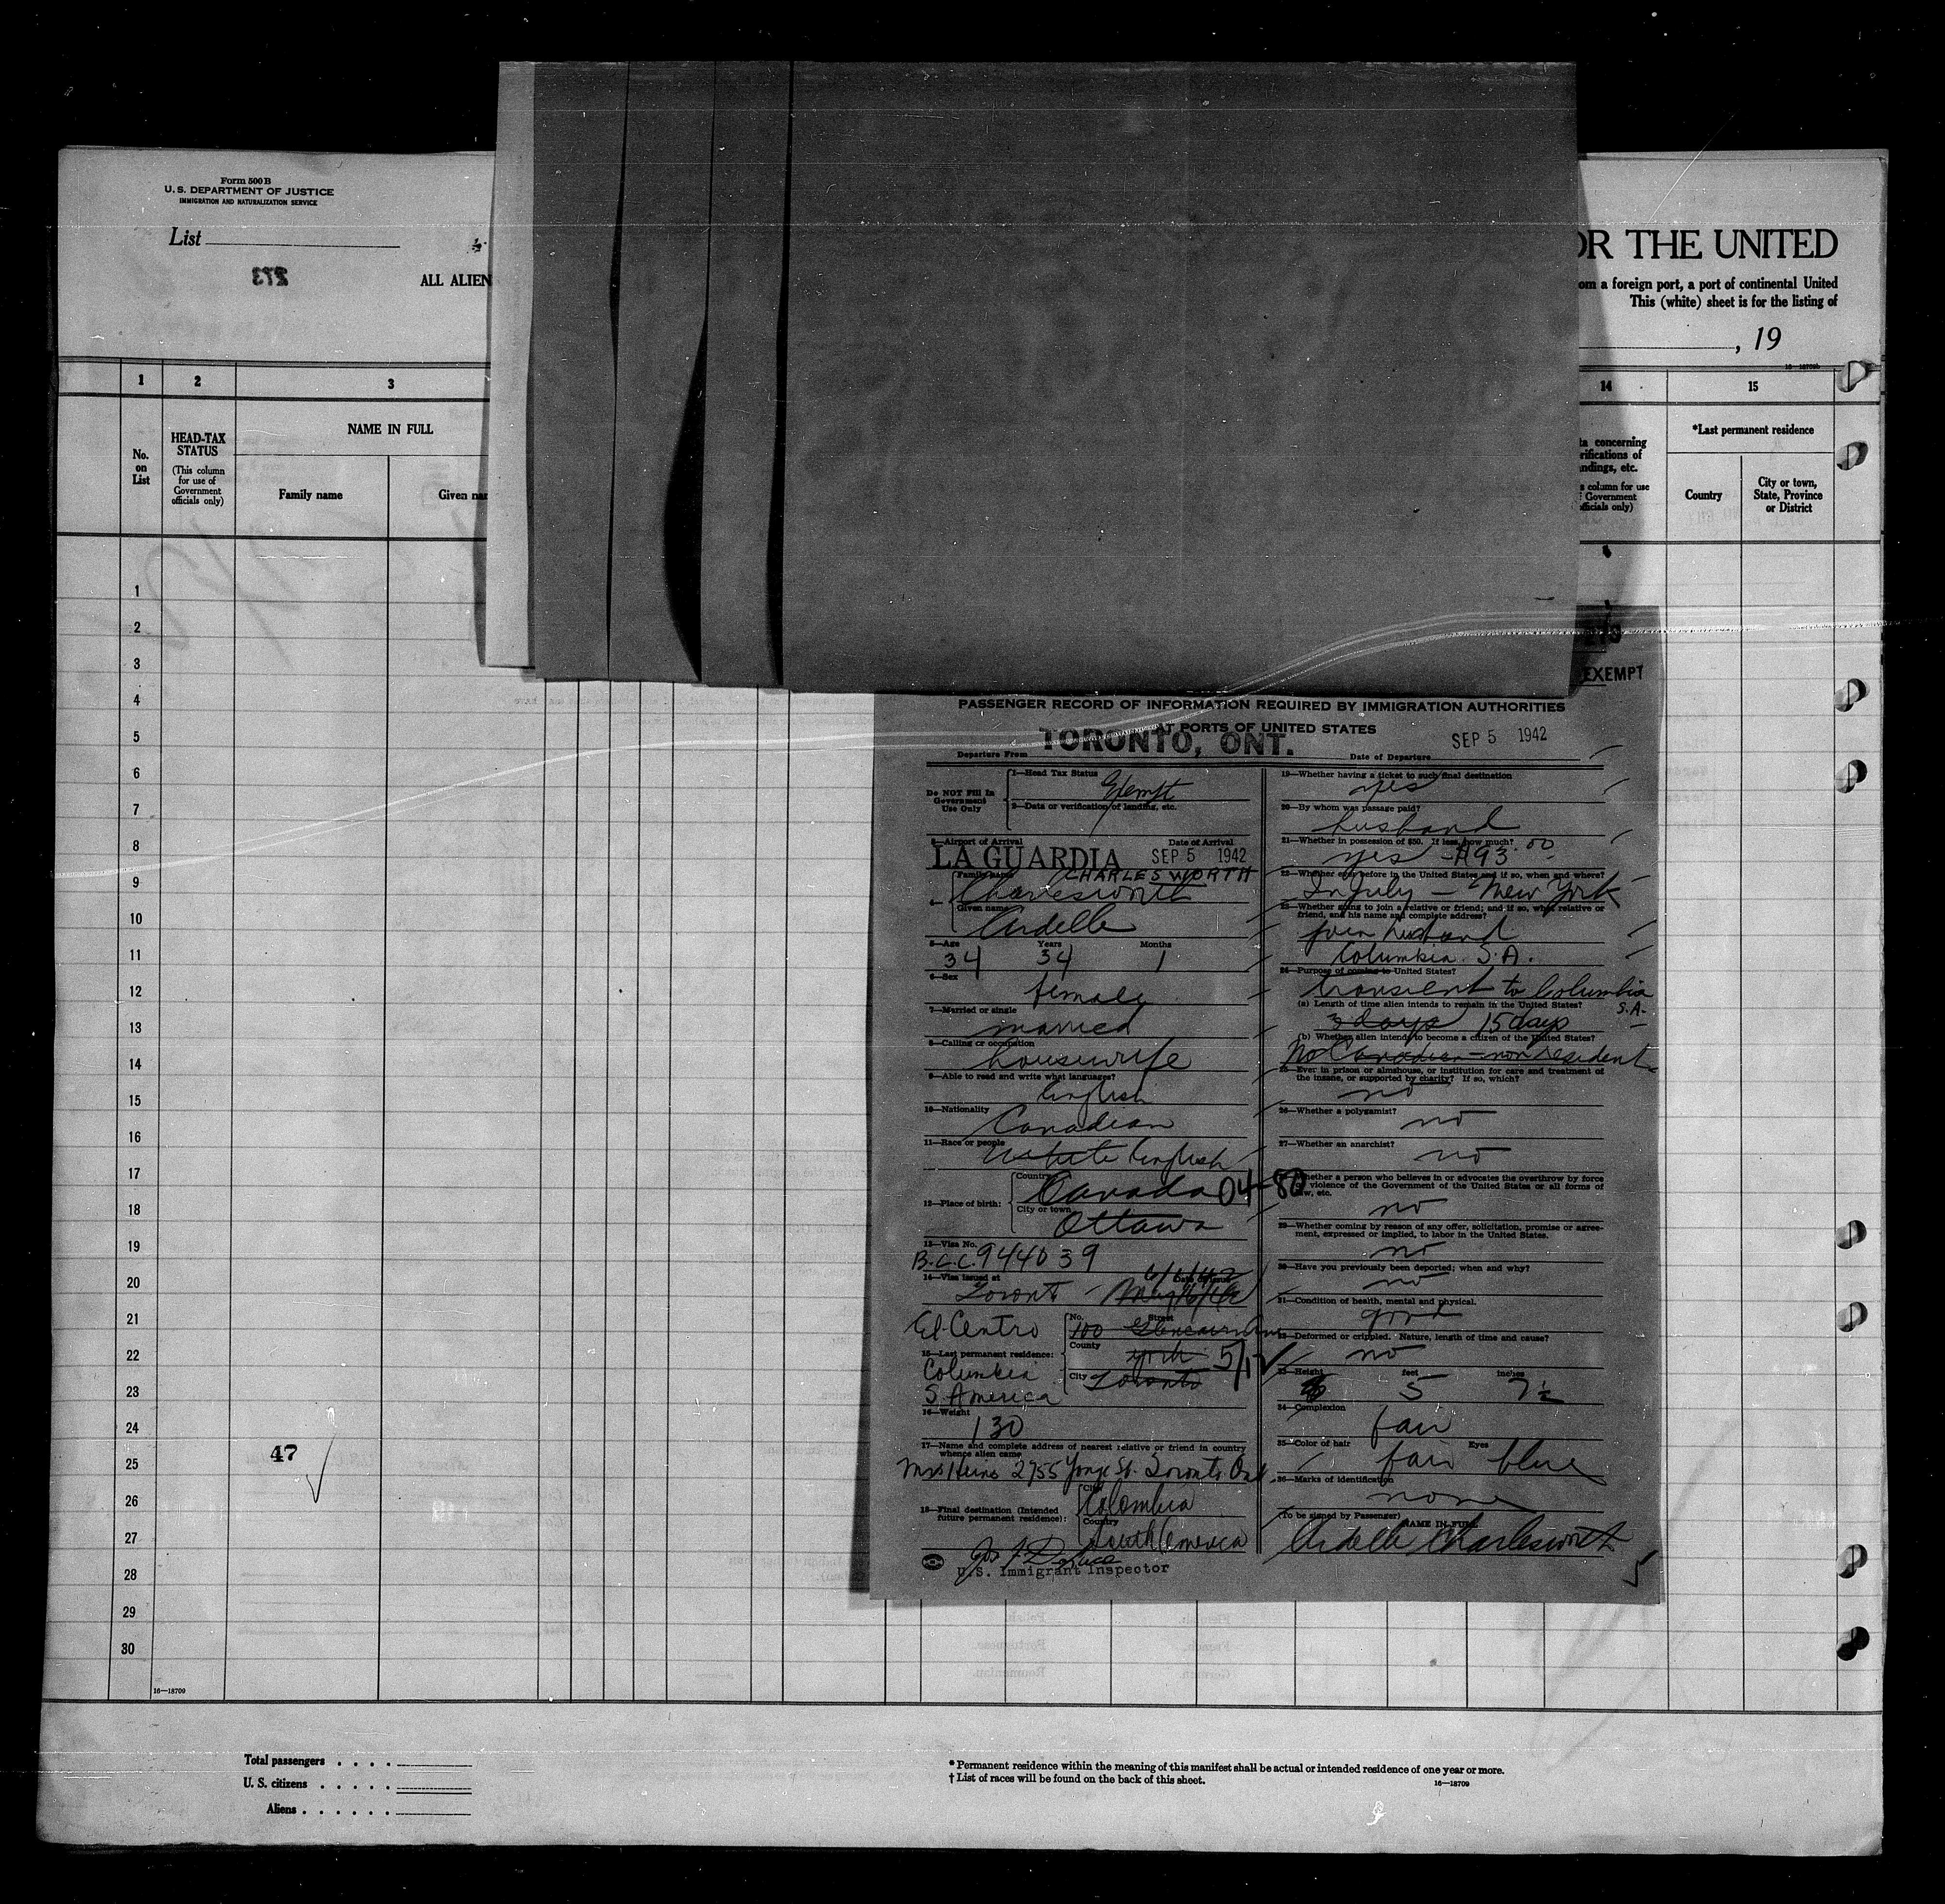 Form 500B
U. S. DEPARTMENT OF JUSTICE
IMMIGRATION AND NATURALIZATION SERVICE
List
273
ALL ALIEN
OR THE UNITED
om a foreign port, a port of continental United
This (white) sheet is for the listing of
, 19
16—18709
1 2 3 14 15
No. on List
HEAD-TAX STATUS
(This column for use of Government officials only)
NAME IN FULL
Family name
Given nam
ta concerning
rifications of
ndings, etc.
s column for use
f Government
officials only)
*Last permanent residence
Country
City or town, State, Province or District
1
2
3
4
5
6
7
8
9
10
11
12
13
14
15
16
17
18
19
20
21
22
23
24
25
26
27
28
29
30
47
16—18709
EXEMPT
PASSENGER RECORD OF INFORMATION REQUIRED BY IMMIGRATION AUTHORITIES
AT PORTS OF UNITED STATES
Departure From TORONTO, ONT. Date of Departure SEP 5 1942
Do NOT Fill In Government Use Only
1—Head Tax Status Exempt
2—Data or verification of landing, etc.
3—Airport of Arrival Date of Arrival
LA GUARDIA SEP 5 1942
4— Family name CHARLESWORTH
Charlesworth
Given name
Ardelle
5—Age Years Months
34 34 1
6—Sex
female
7—Married or single
married
8—Calling or occupation
housewife
9—Able to read and write what languages?
English
10—Nationality
Canadian
11—Race or people
white English
12—Place of birth:
Country Canada 04-80
City or town
Ottawa
13—Visa No.
B.C.C. 944039
14—Visa issued at Date of issue
Toronto 6/6/42
El Centro
No. Street
100 Glencairn Ave
15—Last permanent residence:
County
York 5/12
Columbia
City Toronto
S. America
16—Weight
130
17—Name and complete address of nearest relative or friend in country
whence alien came
2955 Yonge St. Toronto Ont.
18—Final destination (Intended future permanent residence):
City
Colombia
Country
South America
U.S. Immigrant Inspector
19—Whether having a ticket to such final destination
yes
20—By whom was passage paid?
husband
21—Whether in possession of $50. If less, how much?
yes - $93.00
22—Whether ever before in the United States and if so, when and where?
In July - New York
23—Whether going to join a relative or friend; and if so, what relative or
friend, and his name and complete address?
join husband
Columbia. S.A.
24—Purpose of coming to United States?
transient to Columbia S.A.
(a) Length of time alien intends to remain in the United States?
3 days 15 days
(b) Whether alien intends to become a citizen of the United States?
No Canadian - non resident
25—Ever in prison or almshouse, or institution for care and treatment of
the insane, or supported by charity? If so, which?
no
26—Whether a polygamist?
no
27—Whether an anarchist?
no
Whether a person who believes in or advocates the overthrow by force
or violence of the Government of the United States or all forms of
law, etc.
no
29—Whether coming by reason of any offer, solicitation, promise or agree-
ment, expressed or implied, to labor in the United States.
no
30—Have you previously been deported; when and why?
no
31—Condition of health, mental and physical.
good
32—Deformed or crippled. Nature, length of time and cause?
no
33—Height feet inches
5 7½
34—Complexion
fair
35—Color of hair Eyes
fair blue
36—Marks of identification
none
(To be signed by Passenger) NAME IN FULL
Ardelle Charlesworth
5
Total passengers . . . .
U. S. citizens . . . . .
Aliens . . . . . .
* Permanent residence within the meaning of this manifest shall be actual or intended residence of one year or more.
† List of races will be found on the back of this sheet.
16—18709